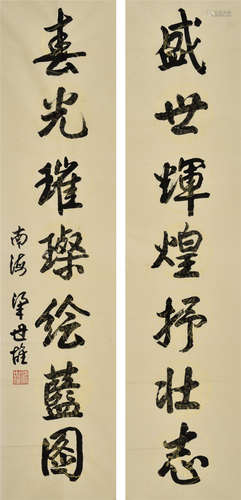 盛世輝煌抒壮志
春光璀璨绘藍图
南海梁世雄